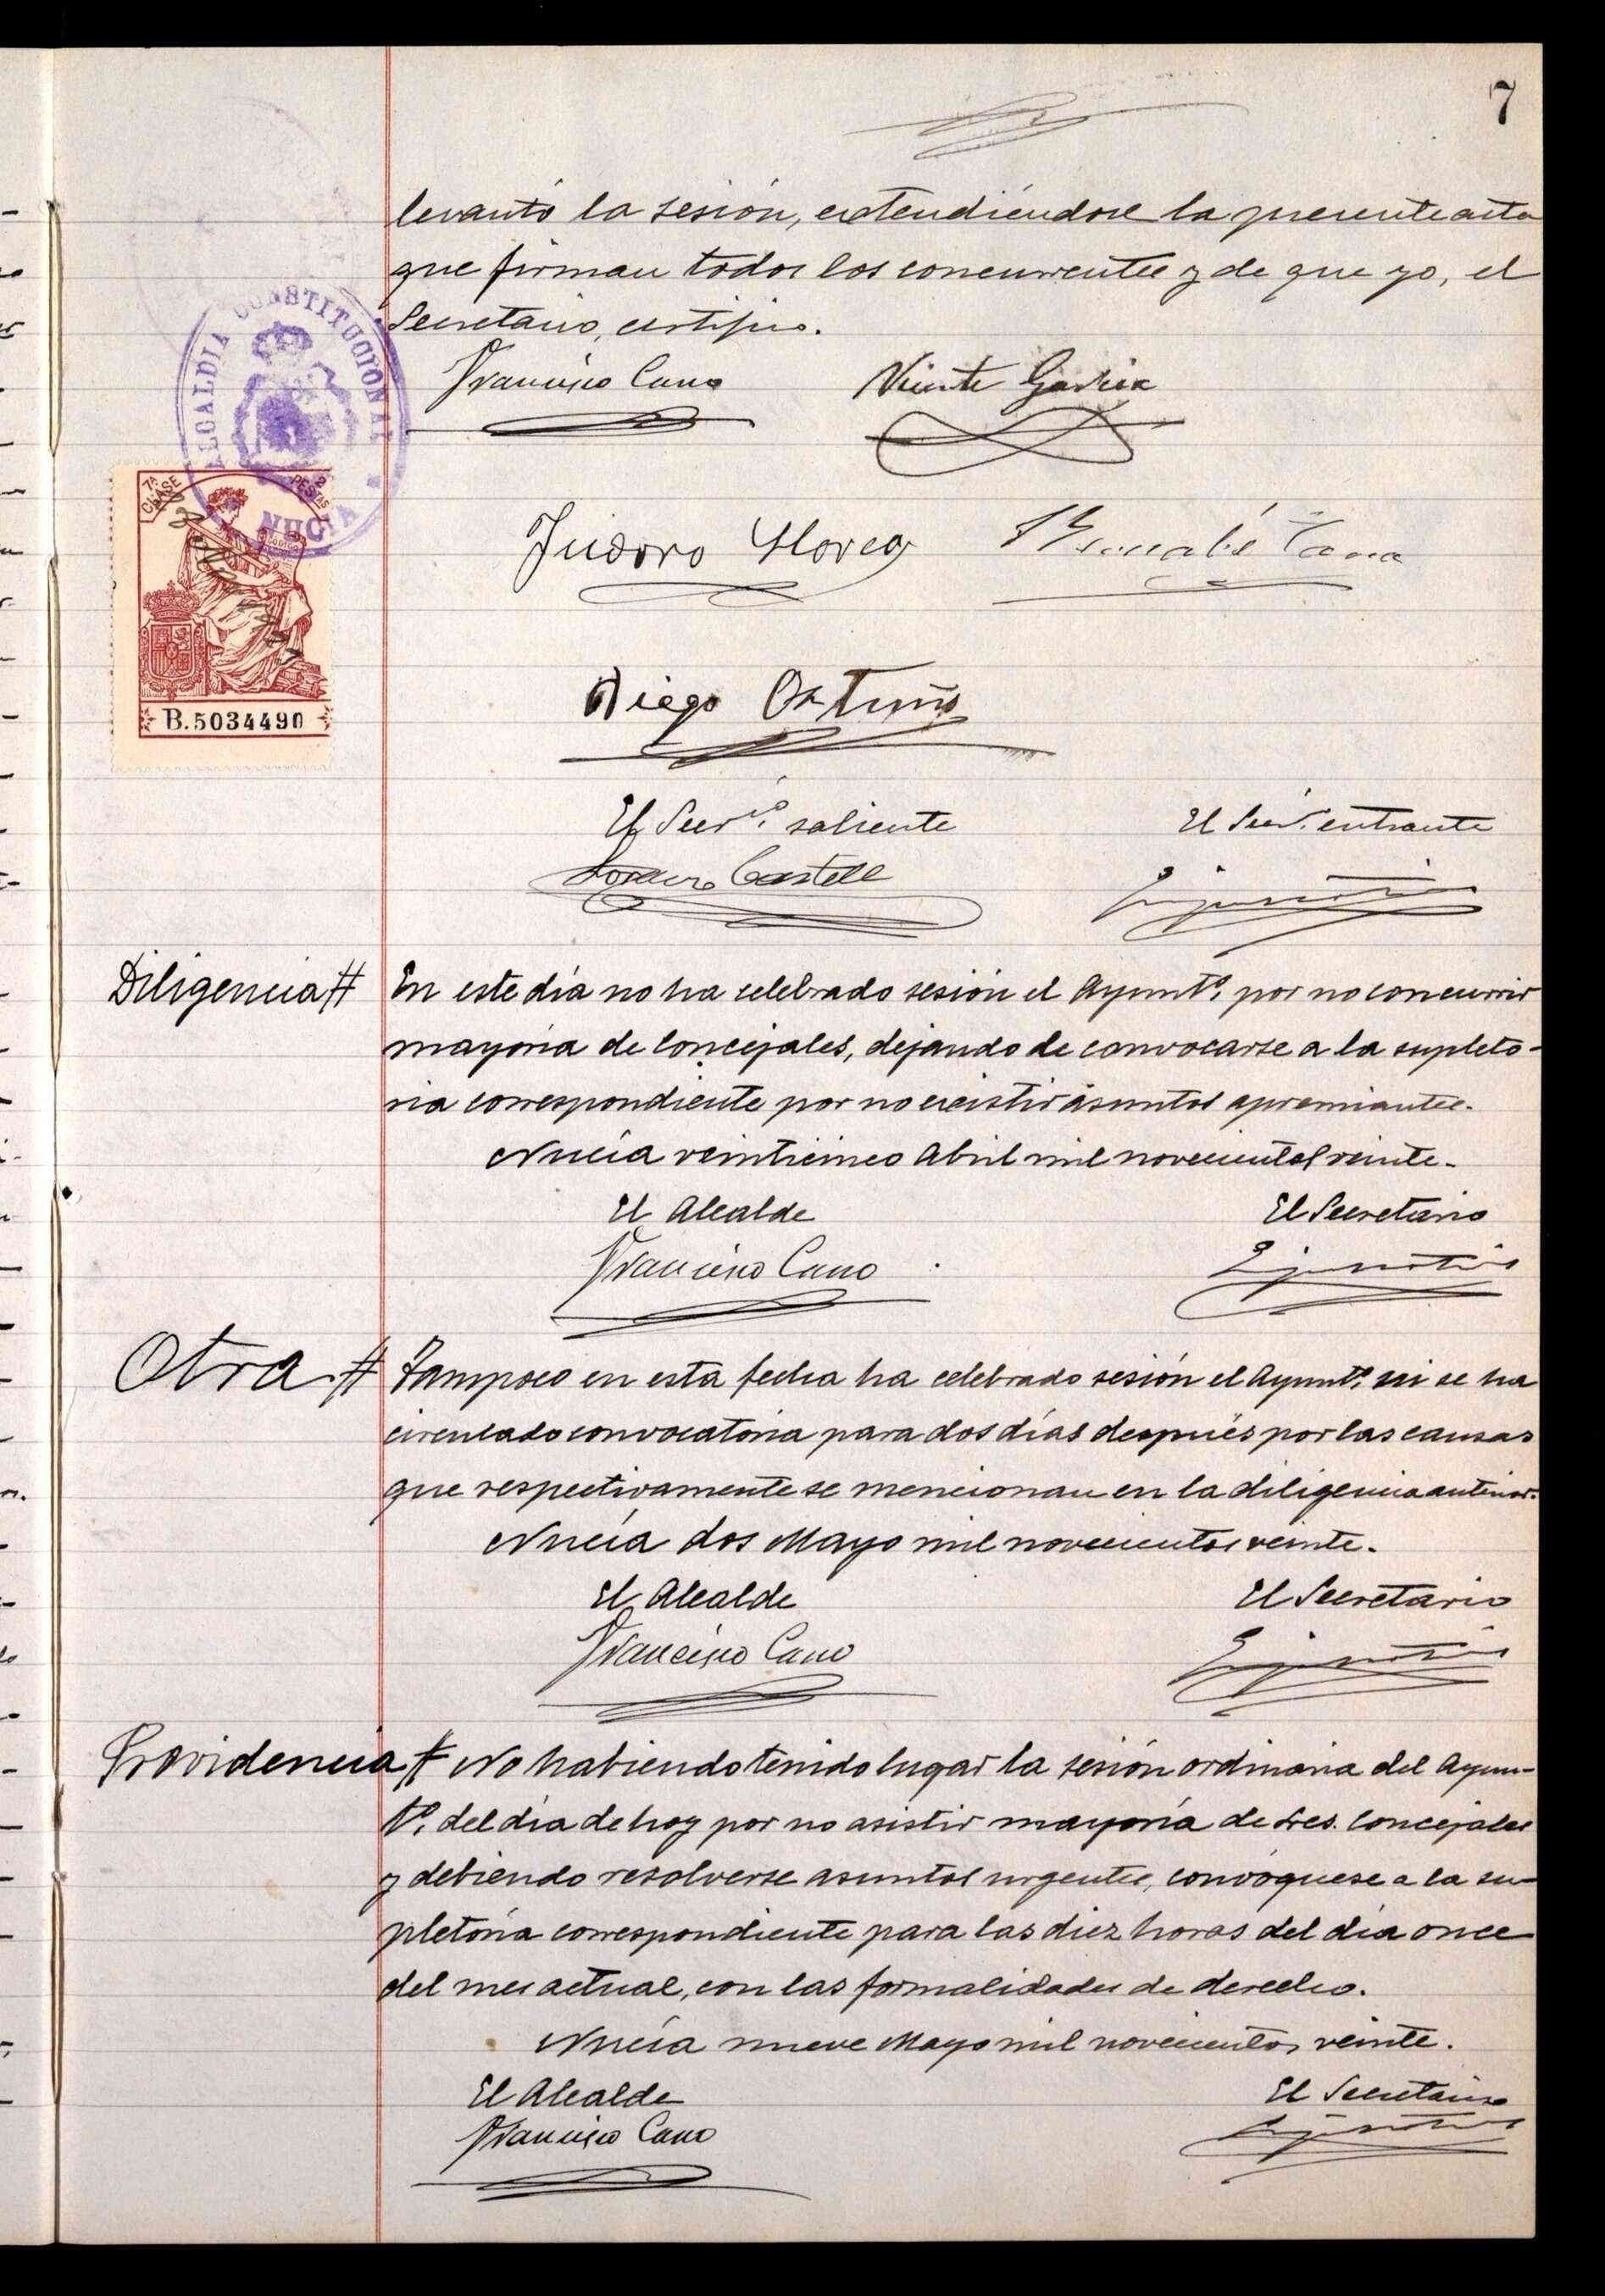 7
levantó la sesión, extendiéndose la presente acta
que firman todos los concurrentes y de que yo, el
Secretario, certifico.
ALCALDIA CONSTITUCIONAL
NUCIA
Francisco Cano
Vicente García
7ª CLASE
2 PESTAS
B.5034490
Isidoro Llorca
Bernabé Cano
Diego Ortuño
El Secrio. saliente
El Secr. entrante
Lorenzo Castell
Diligencia #
En este día no ha celebrado sesión el Ayuntº. por no concurrir
mayoría de Concejales, dejando de convocarse a la supleto-
ria correspondiente por no existir asuntos apremiantes.
Nucía veinticinco Abril mil novecientos veinte.
El Alcalde
El Secretario
Francisco Cano
Otra #
Tampoco en esta fecha ha celebrado sesión el Ayuntº. ni se ha
circulado convocatoria para dos días después por las causas
que respectivamente se mencionan en la diligencia anterior.
Nucía dos Mayo mil novecientos veinte.
El Alcalde
El Secretario
Francisco Cano
Providencia #
No habiendo tenido lugar la sesión ordinaria del Ayun-
tº. del día de hoy por no asistir mayoría de Sres. Concejales
y debiendo resolverse asuntos urgentes, convóquese a la su-
pletoria correspondiente para las diez horas del día once
del mes actual, con las formalidades de derecho.
Nucía nueve Mayo mil novecientos veinte.
El Alcalde
El Secretario
Francisco Cano